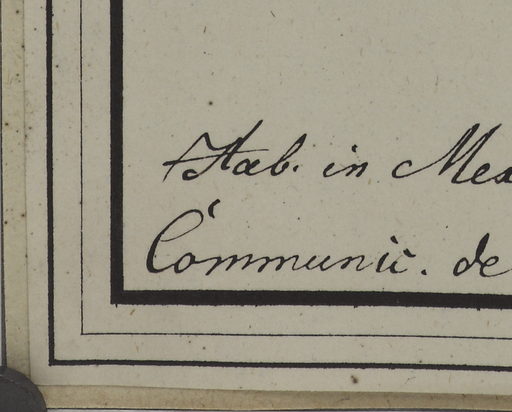 Hab. in Mex
Communic. de